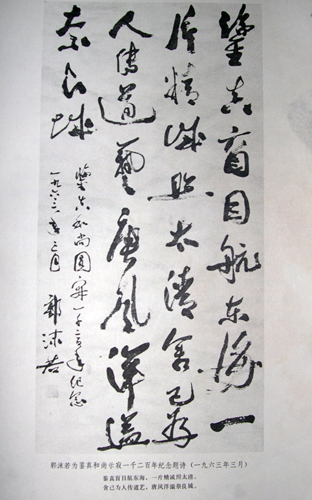 鑒真盲目航东海一
片精诚照太清舍己为
人傳道藝唐風洋溢
奈良城
鑒真和尚圆寂一千二百年纪念
一九六三年三月 郭沫若
郭沫若为鉴真和尚示寂一千二百年纪念题诗（一九六三年三月）
鉴真盲目航东海，一片精诚照太清。
舍己为人传道艺，唐风洋溢奈良城。